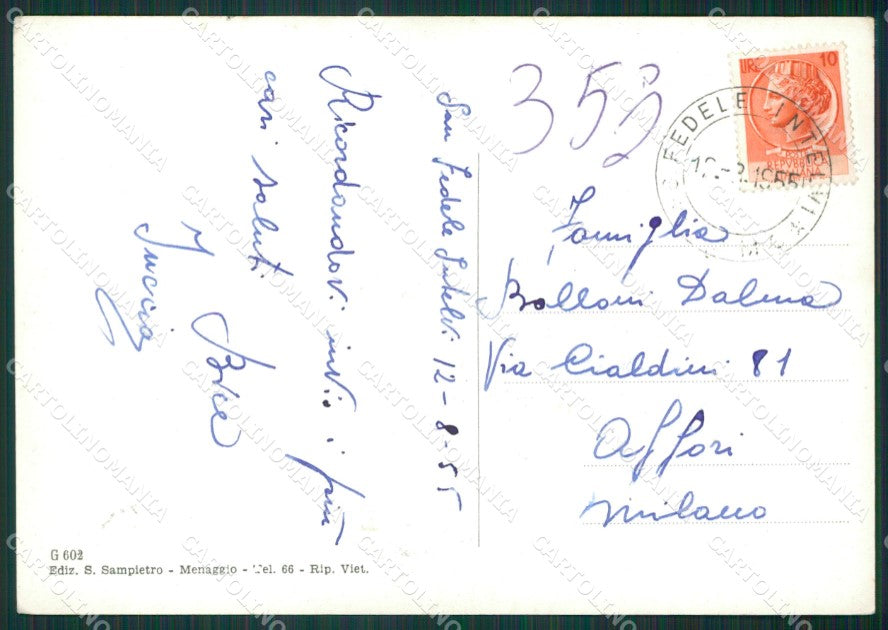 San Fedele Intelvi 12-8-55
Ricordandovi invio i più
cari saluti
Iuccia
353
LIRE 10
FEDELE INTELVI
Famiglia
Balloni Dalma
Via Cialdini 81
Affori
Milano
G 602
Ediz. S. Sampietro - Menaggio - Tel. 66 - Rip. Viet.
CARTOLINOMANIA